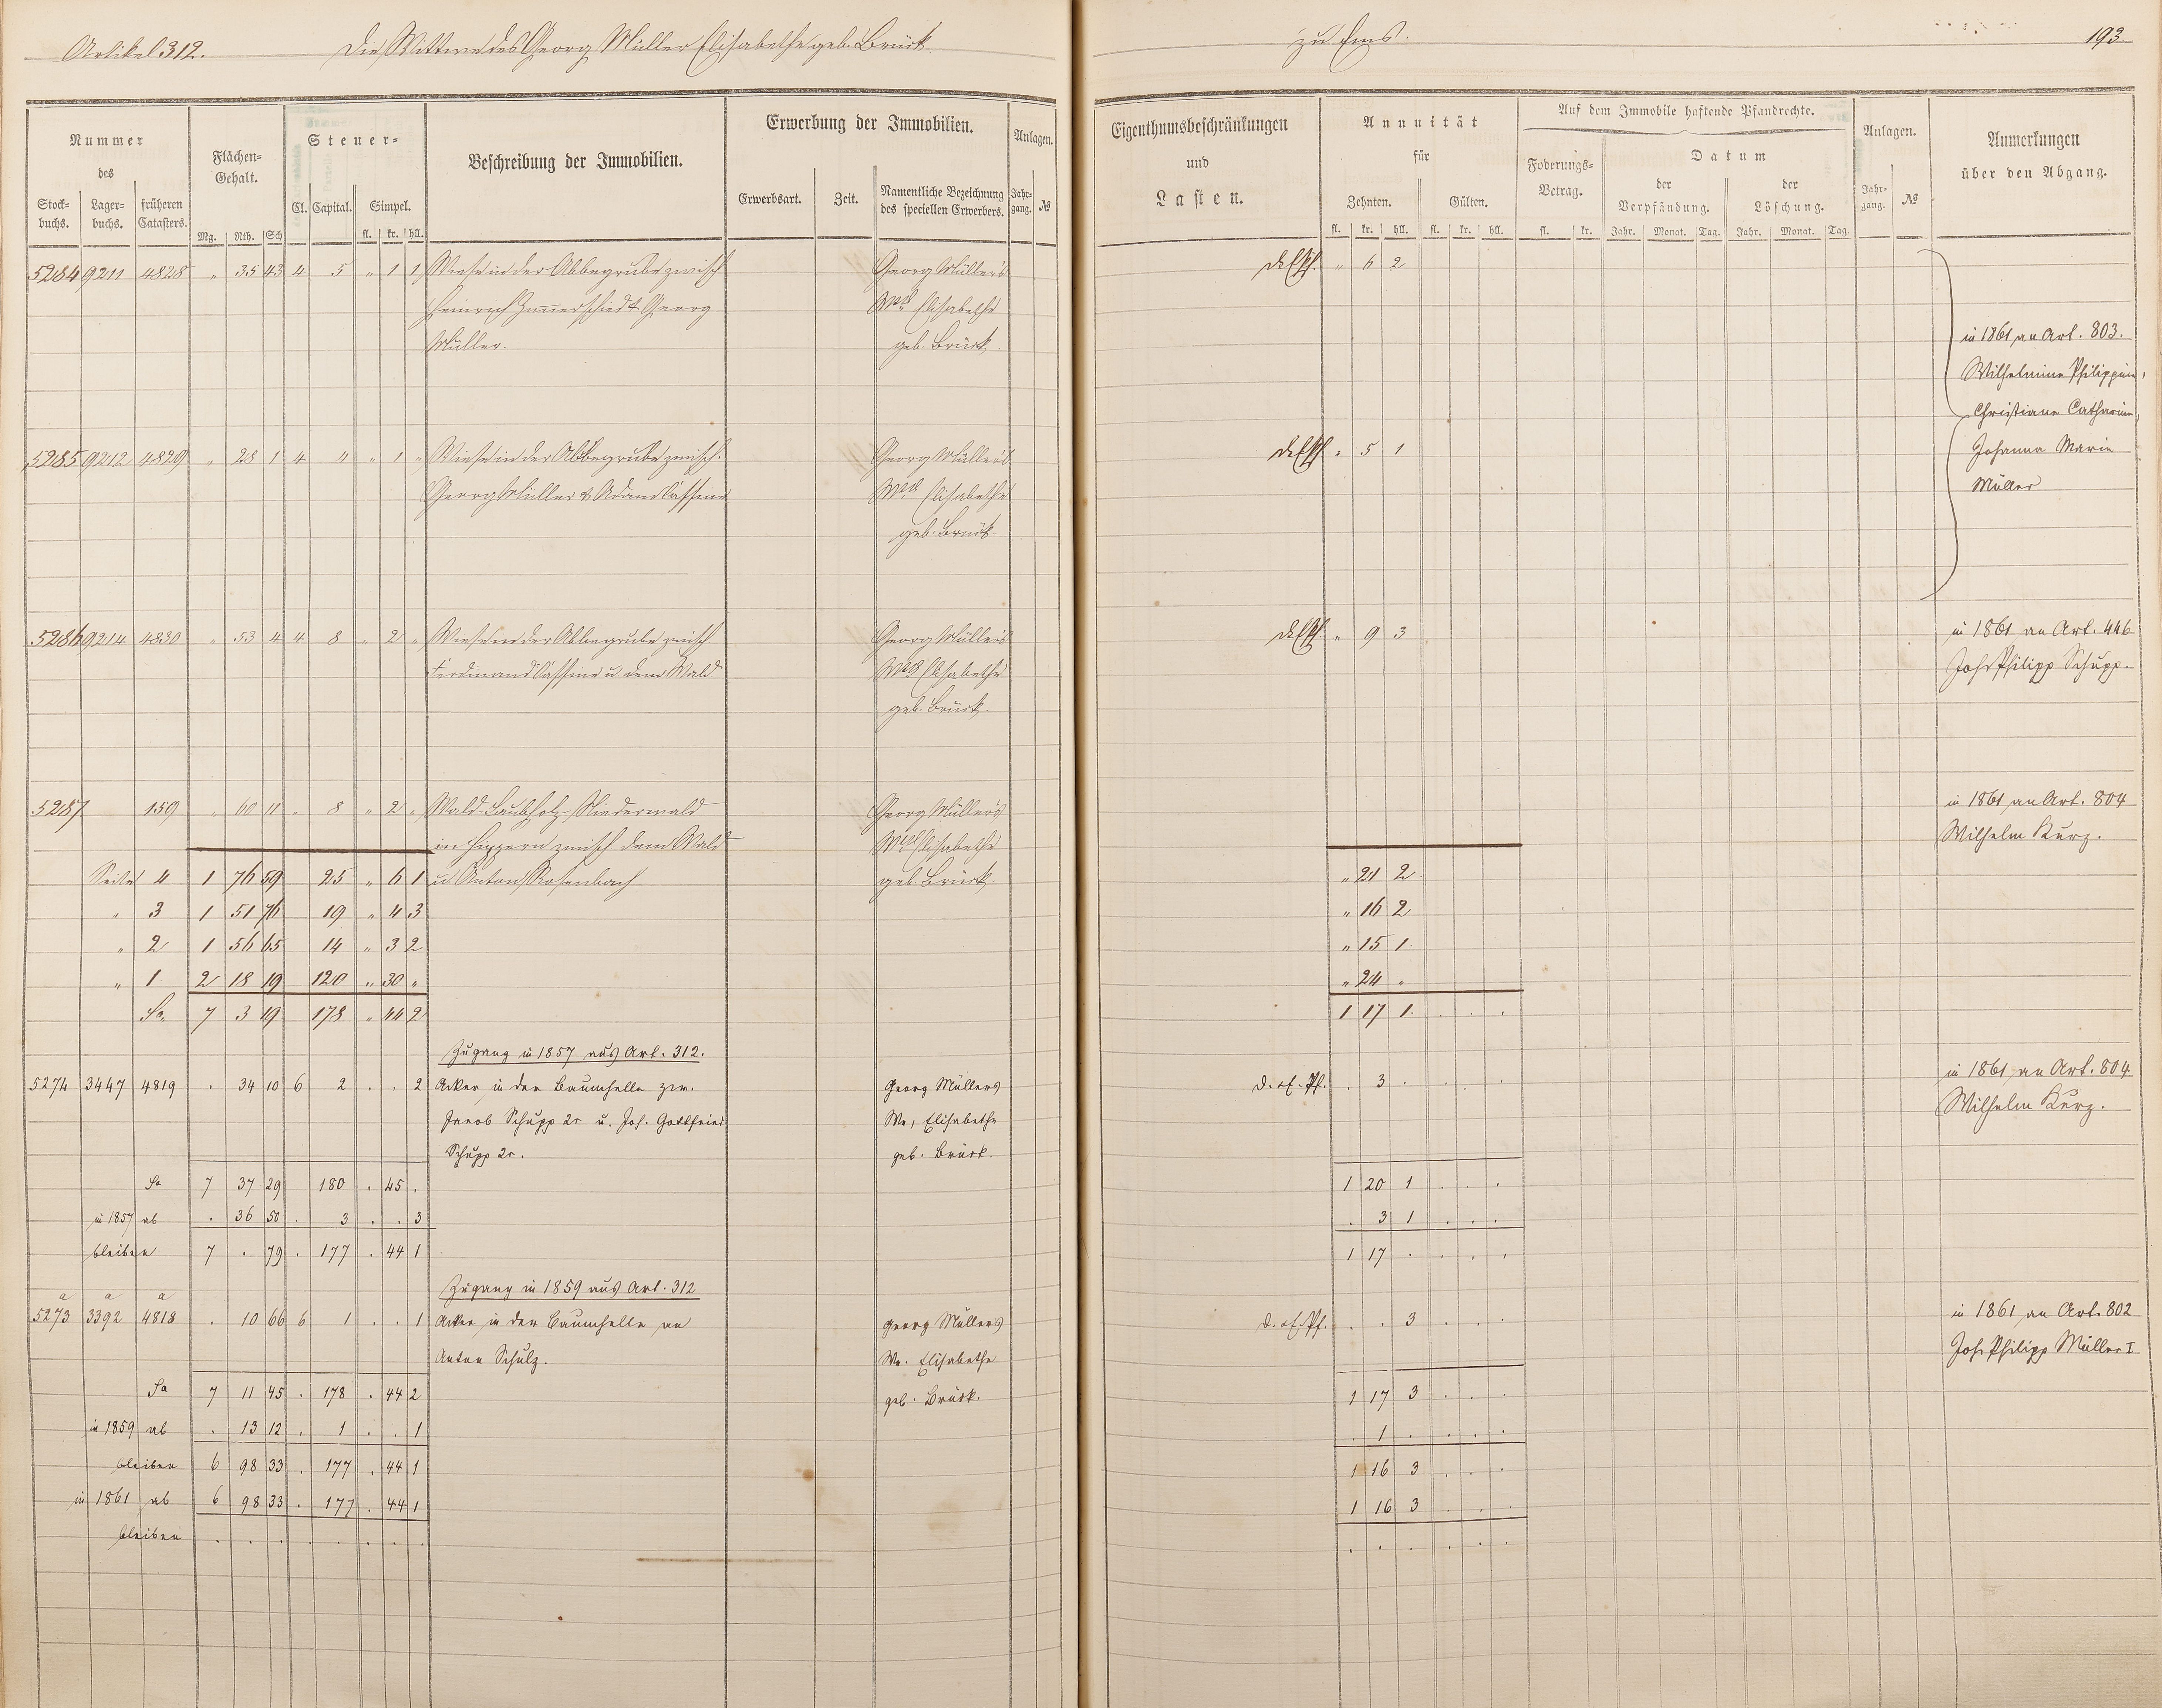 Artikel 312. Die Wittwe des Georg Müller Elisabethe geb. Brück zu Ems. 193
Nummer des
Stock-buchs. Lager-buchs. früheren Catasters.
Flächen-Gehalt.
Mg. Rth. Sch
Steuer-
Cl. Capital. Simpel.
fl. kr. hll.
Beschreibung der Immobilien.
Erwerbung der Immobilien.
Erwerbsart. Zeit. Namentliche Bezeichnung des speciellen Erwerbers.
Anlagen.
Jahr-gang. №
Eigenthumsbeschränkungen
und
Lasten.
Annuität
für
Zehnten. Gülten.
fl. kr. hll. fl. kr. hll.
Auf dem Immobile haftende Pfandrechte.
Foderungs-Betrag.
fl. kr.
Datum
der Verpfändung. der Löschung.
Jahr. Monat. Tag. Jahr. Monat. Tag.
Anlagen.
Jahr-gang. №
Anmerkungen
über den Abgang.
5284 9211 4828 " 35 43 4 5 " 1 1 Wiese in der Abbegrube zwisch Georg Müller's " 6 2
Heinrich Zimerschied & Georg Wwe Elisabethe
Müller. geb. Brück.
in 1861 an Art. 803.
Wilhelmine Philippine,
Christiane Catharine,
Johanna Marie
Müller
5285 9212 4829 " 28 1 4 4 " 1 " Wiese in der Abbegrube zwisch. Georg Müller's " 5 1
Georg Müller & Adam Wwe Elisabethe
geb. Brück
5286 9214 4830 " 53 4 4 8 " 2 " Wiese in der Abbegrube zwisch Georg Müller's " 9 3 in 1861 an Art. 446
Ferdinand u dem Wald Wwe Elisabethe Joh. Philipp Schupp.
geb. Brück.
5287 159 " 60 11 " 8 " 2 " Wald Laubholz-Niederwald Georg Müller's in 1861 an Art. 804
in zwisch dem Wald Wwe Elisabethe Wilhelm Kurz.
Seite 4 1 76 59 25 " 6 1 u Anton Rosenbach geb. Brück. " 21 2
" 3 1 51 76 19 " 4 3 " 16 2
" 2 1 56 65 14 " 3 2 " 15 1
" 1 2 18 19 120 " 30 " " 24 "
Sa. 7 3 19 178 " 44 2 1 17 1 . . .
Zugang in 1857 aus Art. 312.
5274 3447 4819 . 34 10 6 2 . . 2 Acker in der Baumhelle zw. Georg Müllers d. . Pf. . 3 . in 1861 an Art. 804
Jacob Schupp 2r u. Joh. Gottfried We, Elisabethe Wilhelm Kurz.
Schupp 2r. geb. Brück.
Sa 7 37 29 180 . 45 . 1 20 1 . . .
in 1857 ab . 36 50 . 3 . . 3 . 3 1 . . .
bleiben 7 . 79 . 177 . 44 1 1 17 . . . .
Zugang in 1859 aus Art. 312
a a a
5273 3392 4818 . 10 66 6 1 . . 1 Acker in der Baumhelle an Georg Müllers d. . Pf. . . 3 . . . in 1861 an Art. 802
Anton Schulz. We. Elisabethe Joh. Philipp Müller I
geb. Brück.
Sa 7 11 45 . 178 . 44 2 1 17 3 . . .
in 1859 ab . 13 12 . 1 . . 1 . 1 . . . .
bleiben 6 98 33 . 177 . 44 1 1 16 3 . . .
in 1861 ab 6 98 33 . 177 . 44 1 1 16 3 . . .
bleiben . . . . . . . . . . . . . .